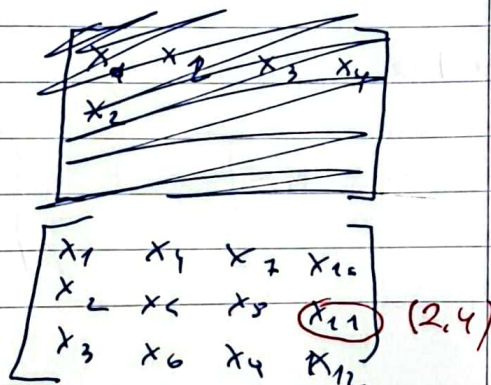 x1 x2 x3 x4
x2
x1 x4 x7 x10
x2 x5 x8 x11 (2,4)
x3 x6 x9 x12